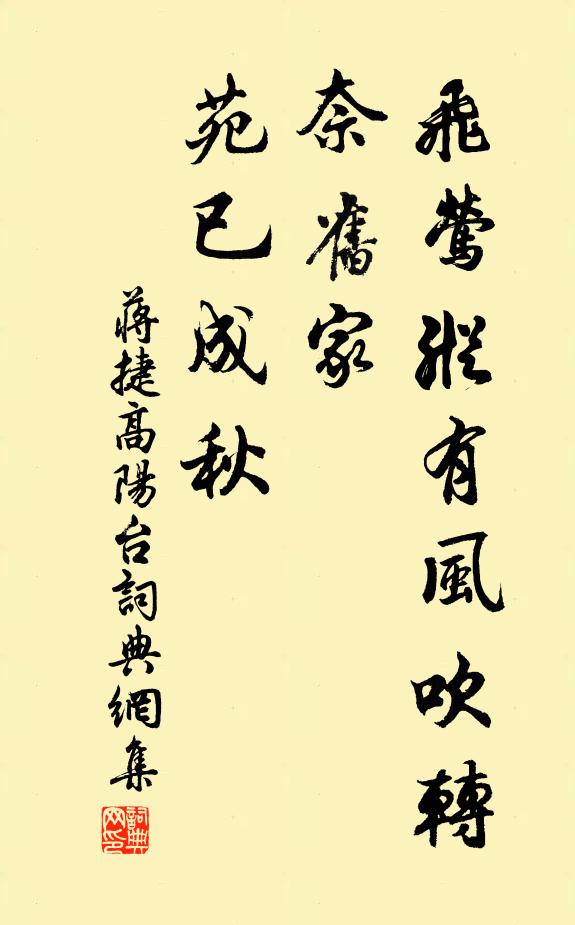 飛鶯縱有風吹轉
奈舊家
苑已成秋
蔣捷高陽台詞典網集
詞典網印